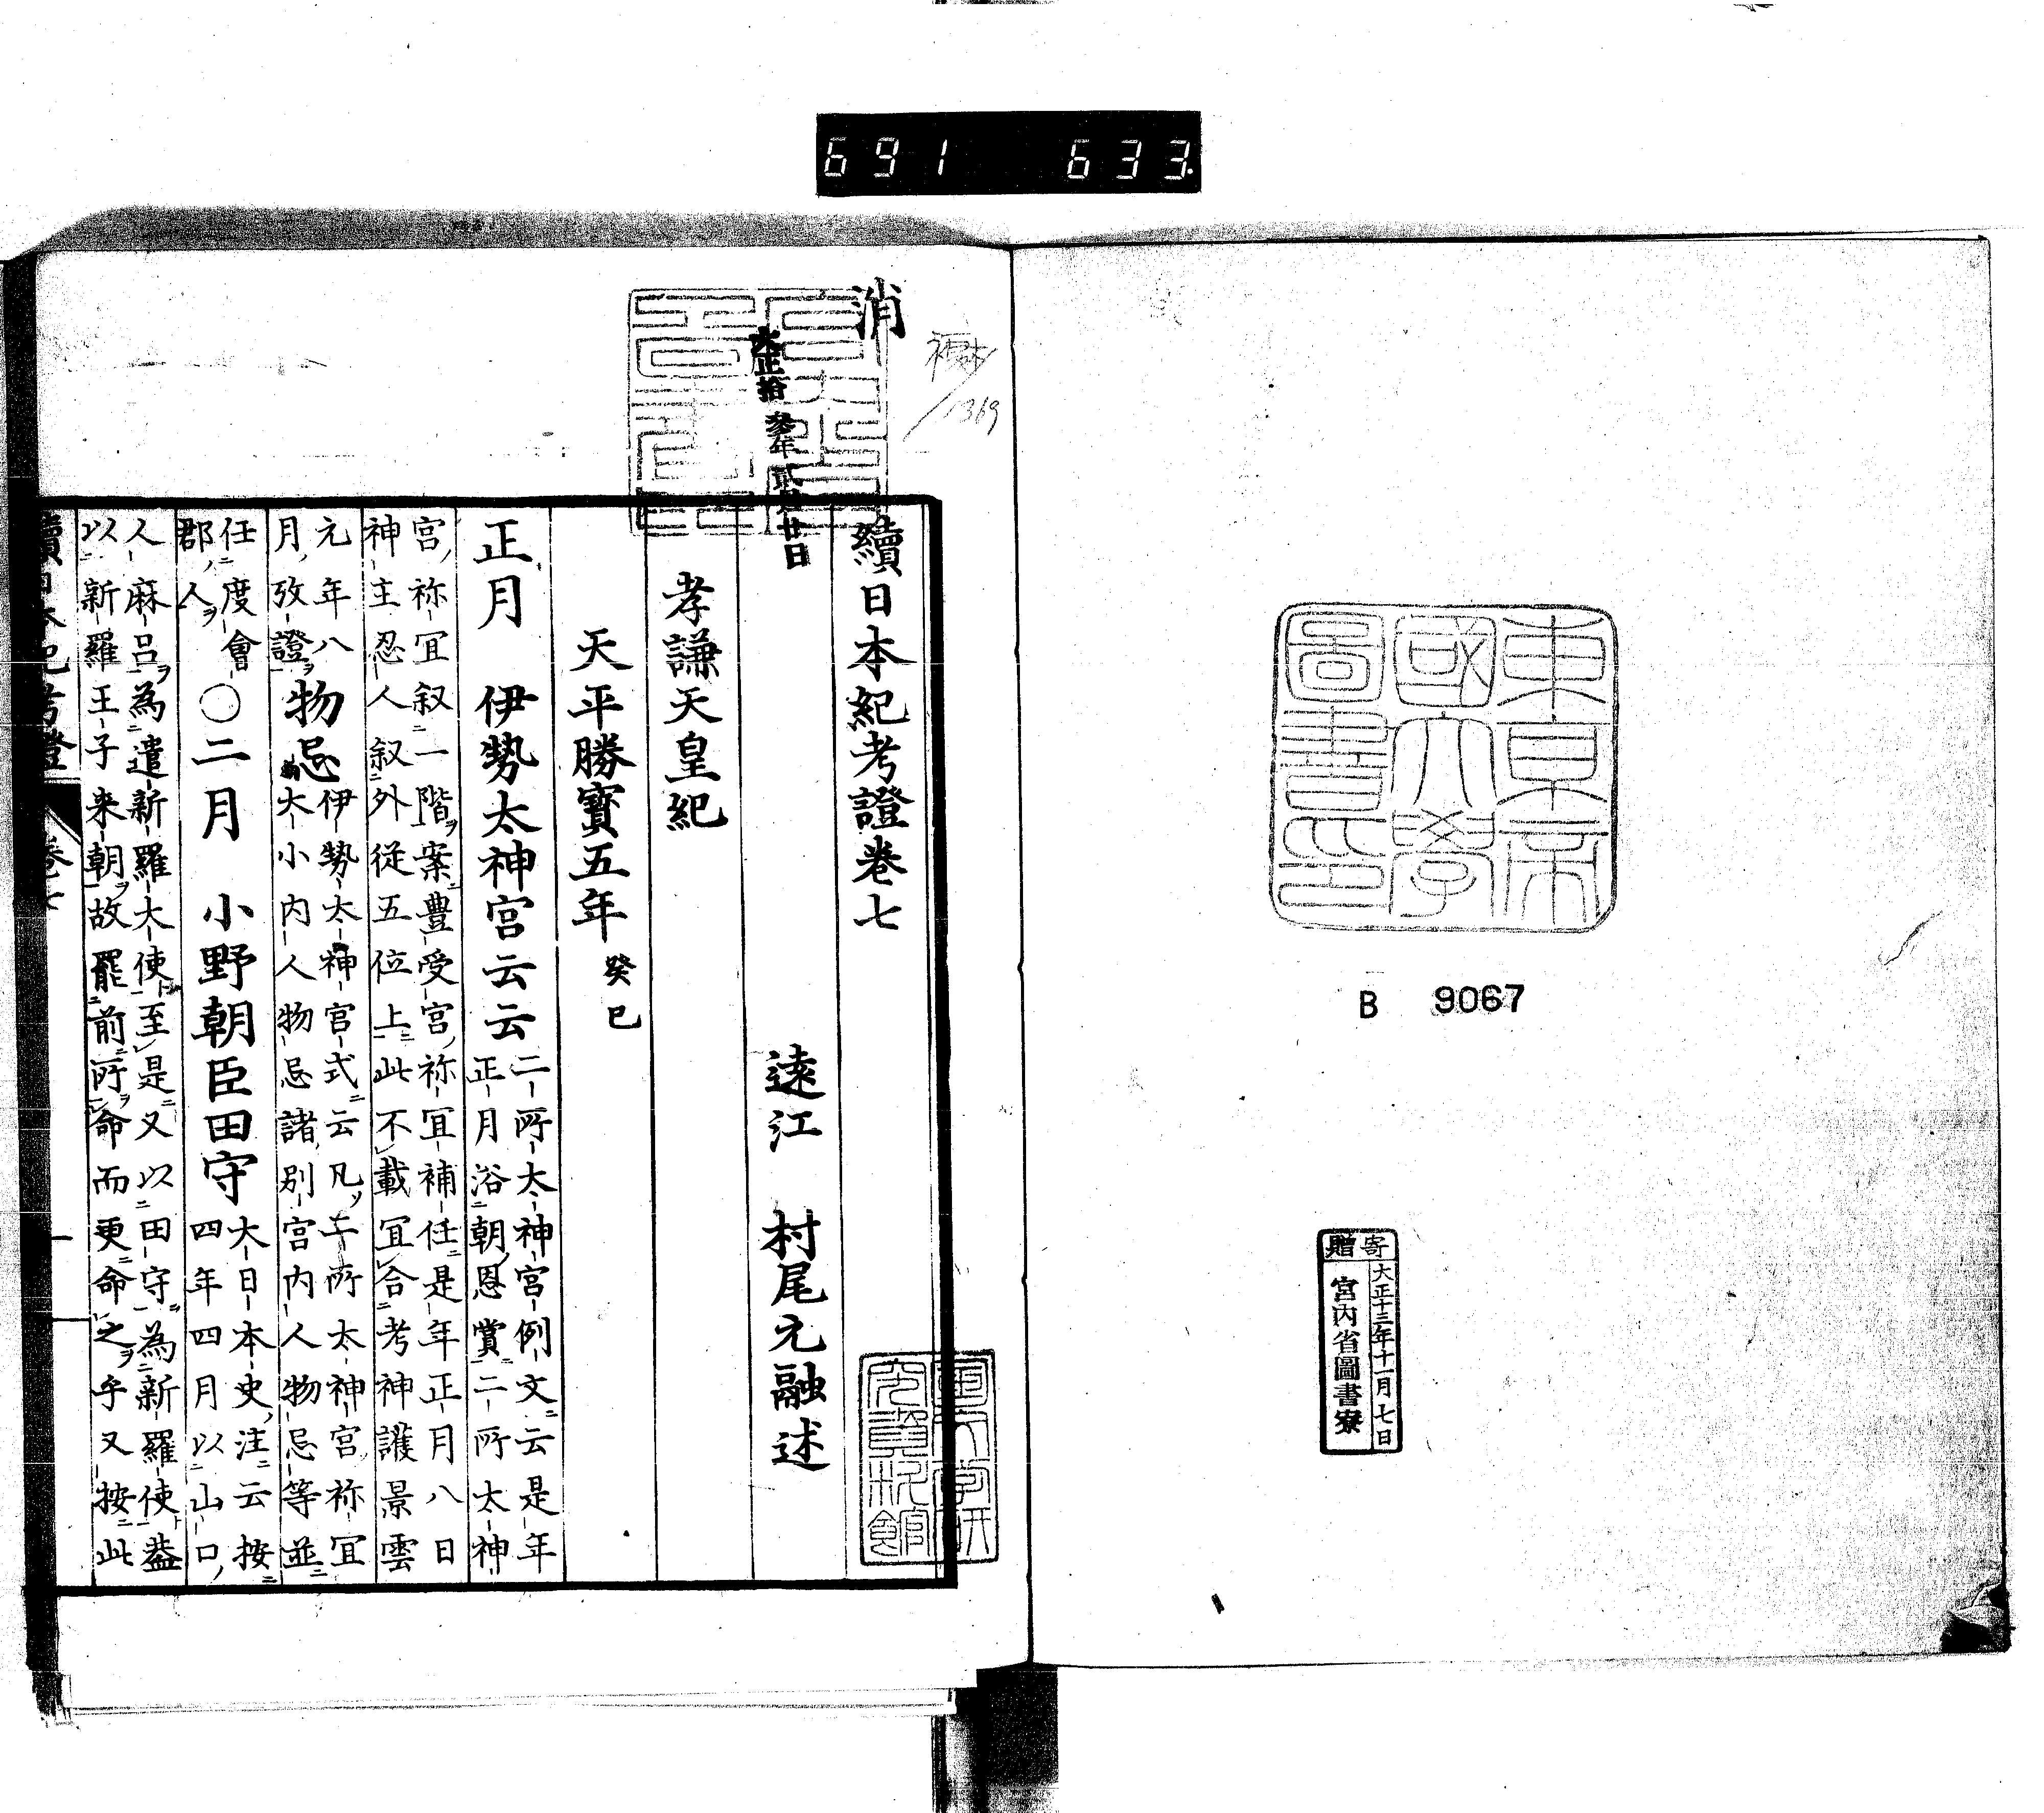 691 633.
東京帝
國大學
圖書印
B 9067
寄贈
大正十三年十一月七日
宮內省圖書寮
消
大正拾參年貳月廿日
1369
續日本紀考證卷七
遠江 村尾元融述
孝謙天皇紀
天平勝寶五年 癸巳
正月 伊勢太神宮云云
二所太神宮例文云是年
正月浴朝恩賞二所太神
宮祢冝叙一階案豊受宮祢冝補任是年正月八日
神主忍人叙外從五位上此不載冝合考神護景雲
元年八
月攷證
物忌
伊勢太神宮式云凡二所太神宮祢冝
大小內人物忌諸別宮內人物忌等並
任度會
郡人
〇二月 小野朝臣田守
大日本史注云按
四年四月以山口
人麻呂為遣新羅大使至是又以田守為新羅使蓋
以新羅王子来朝故罷前所命而更命之乎又按此
續日本紀考證 卷七